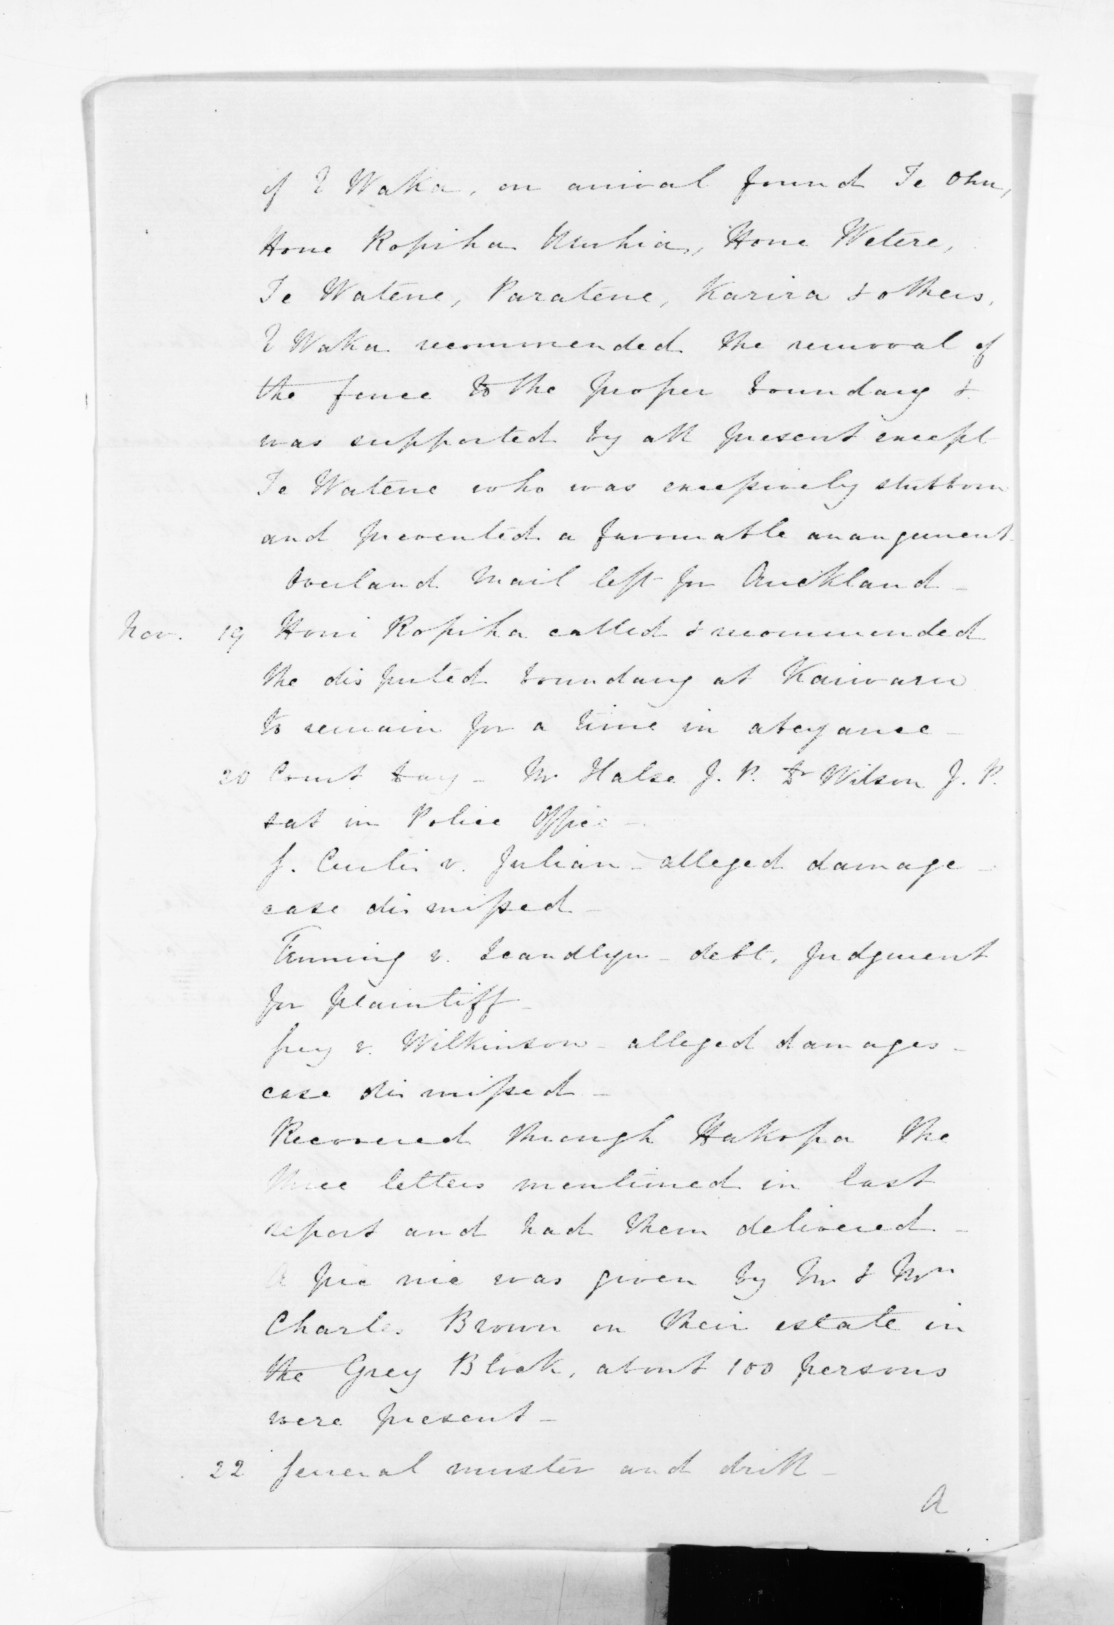 of E Waka, on arrival found Te Ohu,
Hone Ropiha Hone Wetere,
Te Watene, Paratene, Karira & others.
E Waka recommended the removal of
the fence to the proper boundary &
was supported by all present except
Te Watene who was excessively stubborn
and prevented a favourable arrangement.
Overland Mail left for Auckland -
Nov. 19 Honi Ropiha called & recommended
the disputed boundary at Kaiwaru
to remain for a time in abeyance -
20 Court Day - Mr Halse J. P. Dr Wilson J. P.
sat in Police Office -
J. Curtis v. Julian - alleged damage -
case dismissed -
v. - debt, judgment
for plaintiff -
v. Wilkinson - alleged damages -
case dismissed -
Recovered through Hakopa the
three letters mentioned in last
report and had them delivered -
A pic nic was given by Mr & Mrs
Charles Brown on their estate in
the Grey Block, about 100 persons
were present -
22 General muster and drill -
A